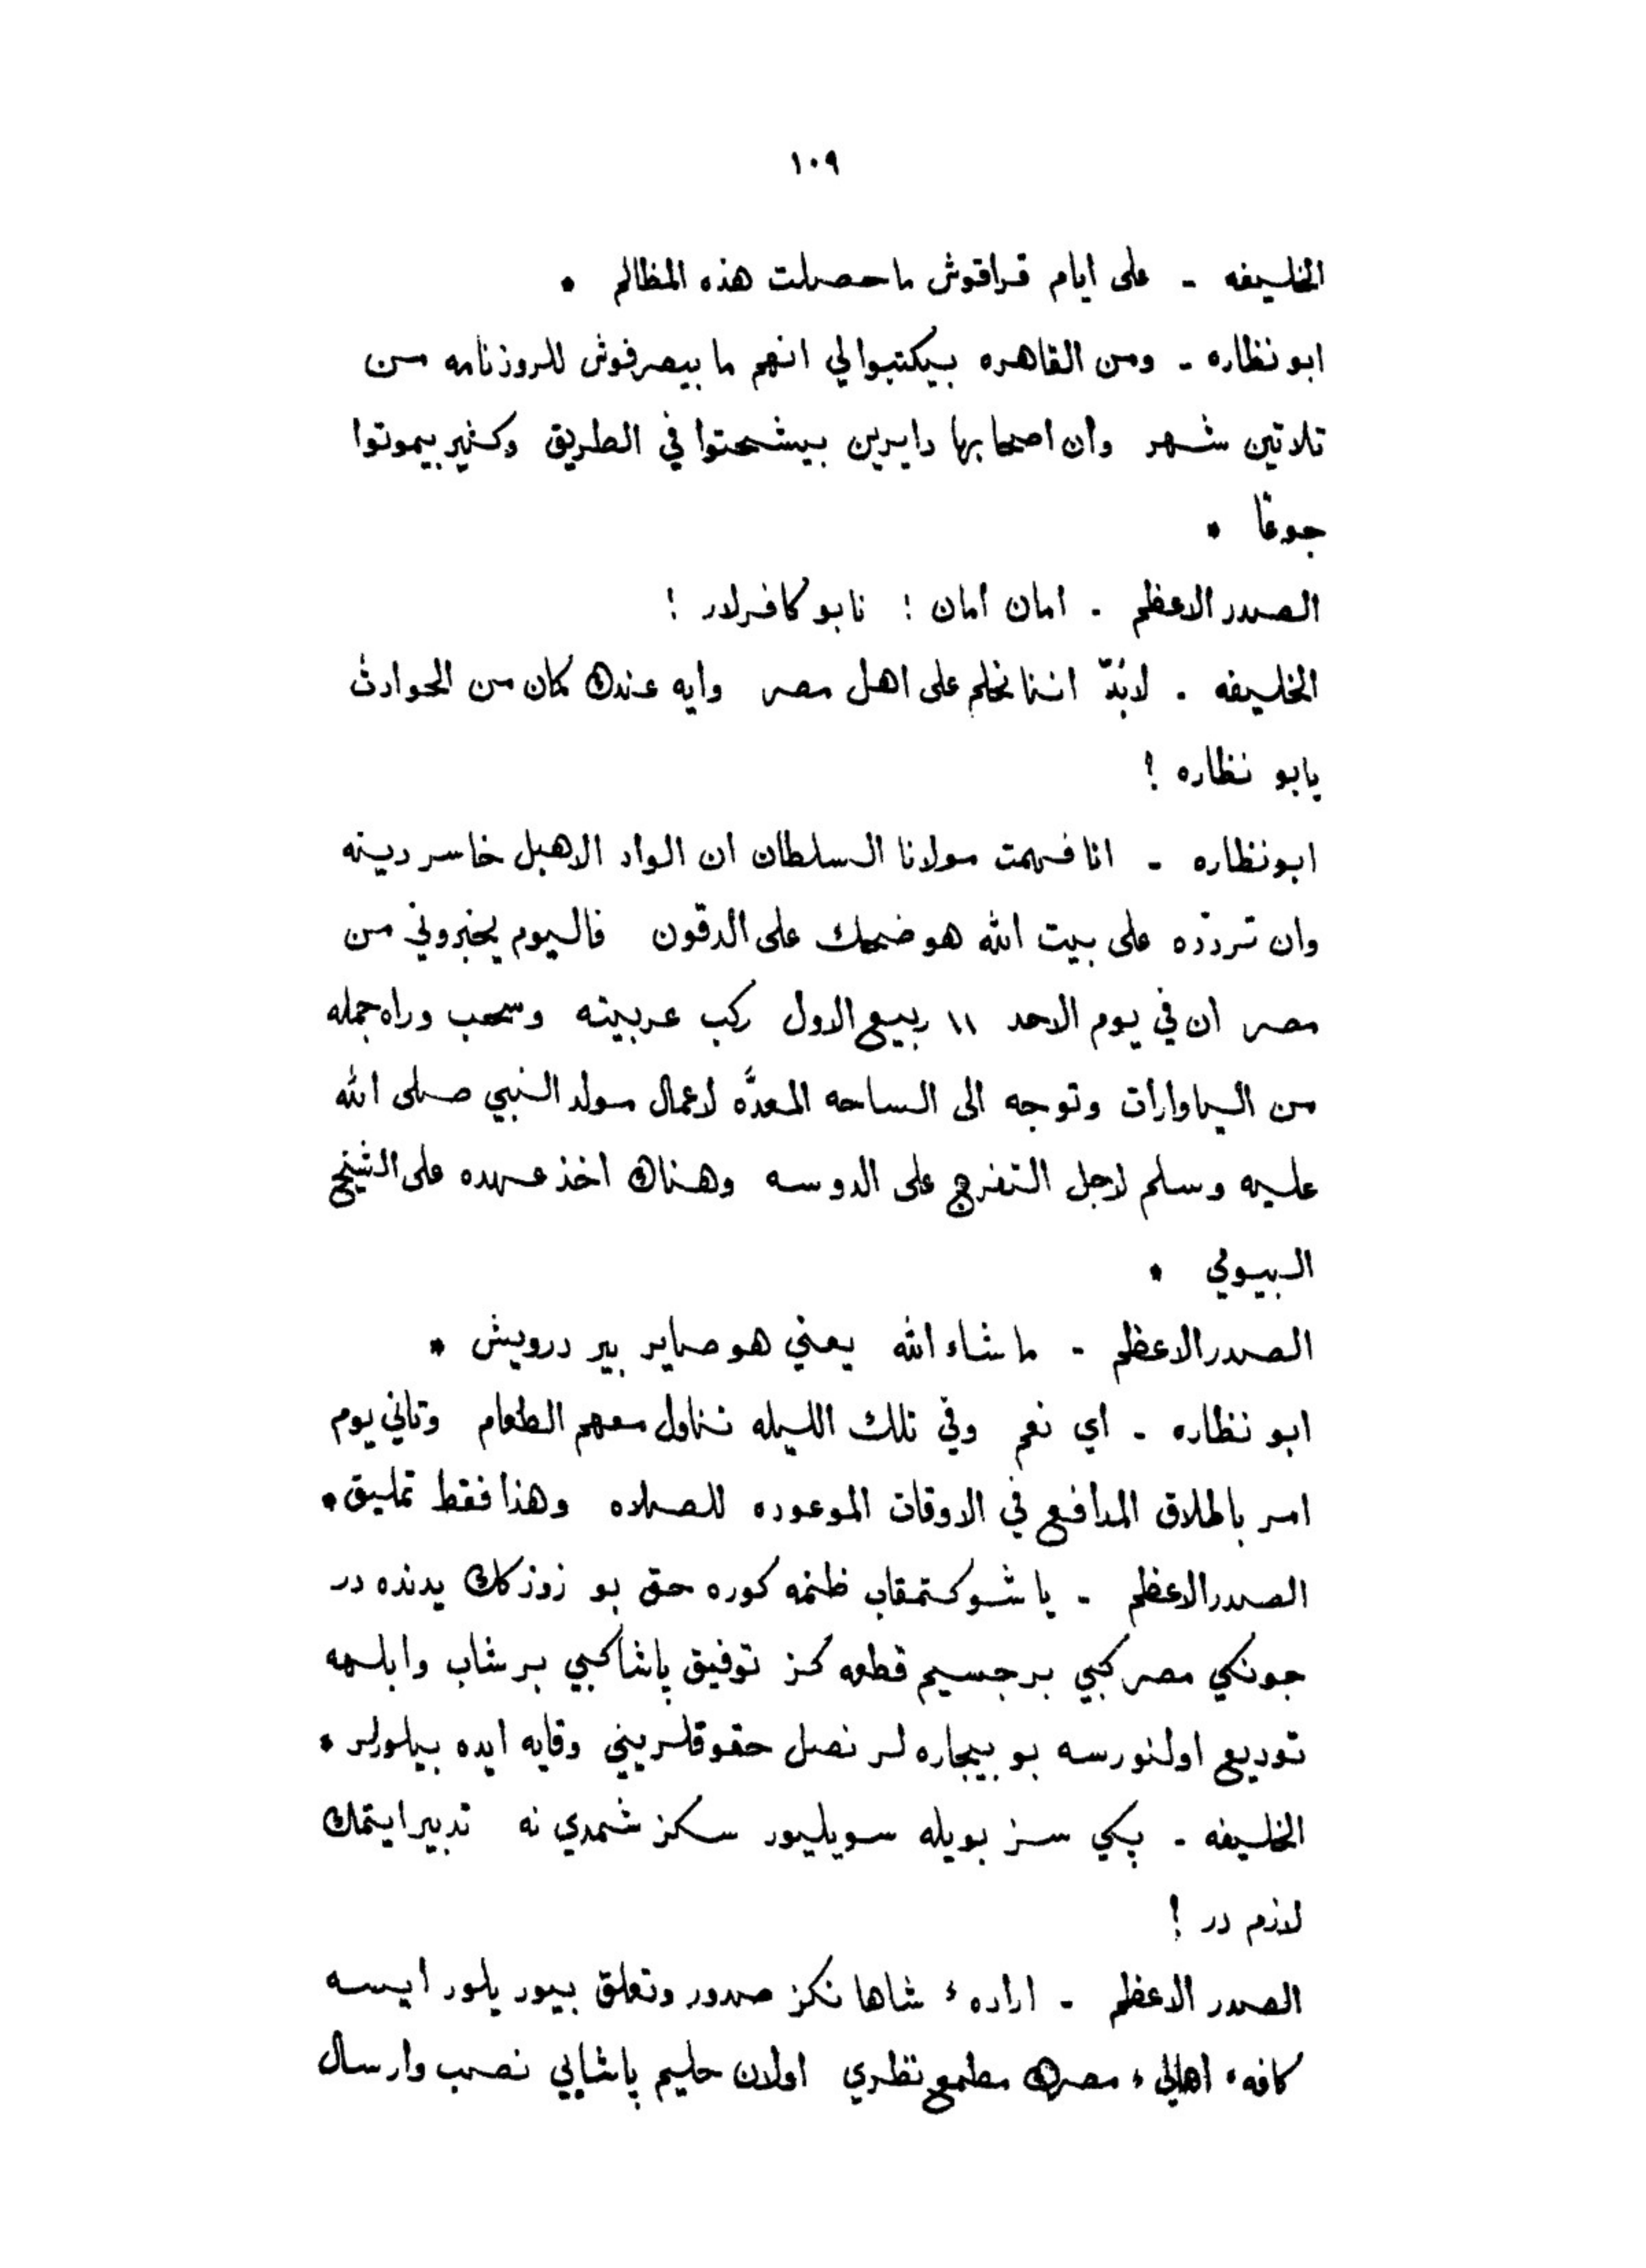 ١٠٩
الخليفه - على ايام قراقوش ماحصلت هذه المظالم •
ابو نظاره - ومن القاهره بيكتبوا لي انهم ما بيصرفوش للروزنامه من
تلاتين شهر وان اصحابها دايرين بيشحتوا في الطريق وكثير بيموتوا
جوعًا •
الصدر الاعظم - امان امان ! نابو كافرلار !
الخليفه - لابُدّ اننا نحلم على اهل مصر وايه عندك كمان من الحوادث
يابو نظاره ؟
ابو نظاره - انا فهمت مولانا السلطان ان الواد الاهبل خاسر دينه
وان تردّده على بيت الله هو ضحك على الدقون فاليوم يخبروني من
مصر ان في يوم الاحد ١١ ربيع الاول ركب عربيته وسحب وراه جمله
من الياوارات وتوجه الى الساحه المعدَّه لاعمال مولد النبي صلى الله
عليه وسلم لاجل التفرج على الدوسه وهناك اخذ عهده على الشيخ
البيولي •
الصدر الاعظم - ماشاء الله يعني هو صاير بير درويش •
ابو نظاره - اي نعم وفي تلك الليله تناول معهم الطعام وتاني يوم
امر باطلاق المدافع في الاوقات الموعوده للصلاه وهذا فقط تمليق •
الصدر الاعظم - يا شوكتمقاب ظنمه كوره حق بو زوزكك يدنده در
جونكي مصر كبي بر جسيم قطعه كز توفيق پاشا كبي بر شاب وابلهه
توديع اولنورسه بو بيچاره لر نصل حقوقلريني وقايه ايده بيلورلر •
الخليفه - پكي سز بويله سويليور سكز شمدي نه تدبير ايتمك
لازم در !
الصدر الاعظم - اراده ء شاهانكز صدور وتعلق بيور يلور ايسه
كافه ء اهالي ء مصرك مطمع نظري اولان حليم پاشايي نصب وارسال